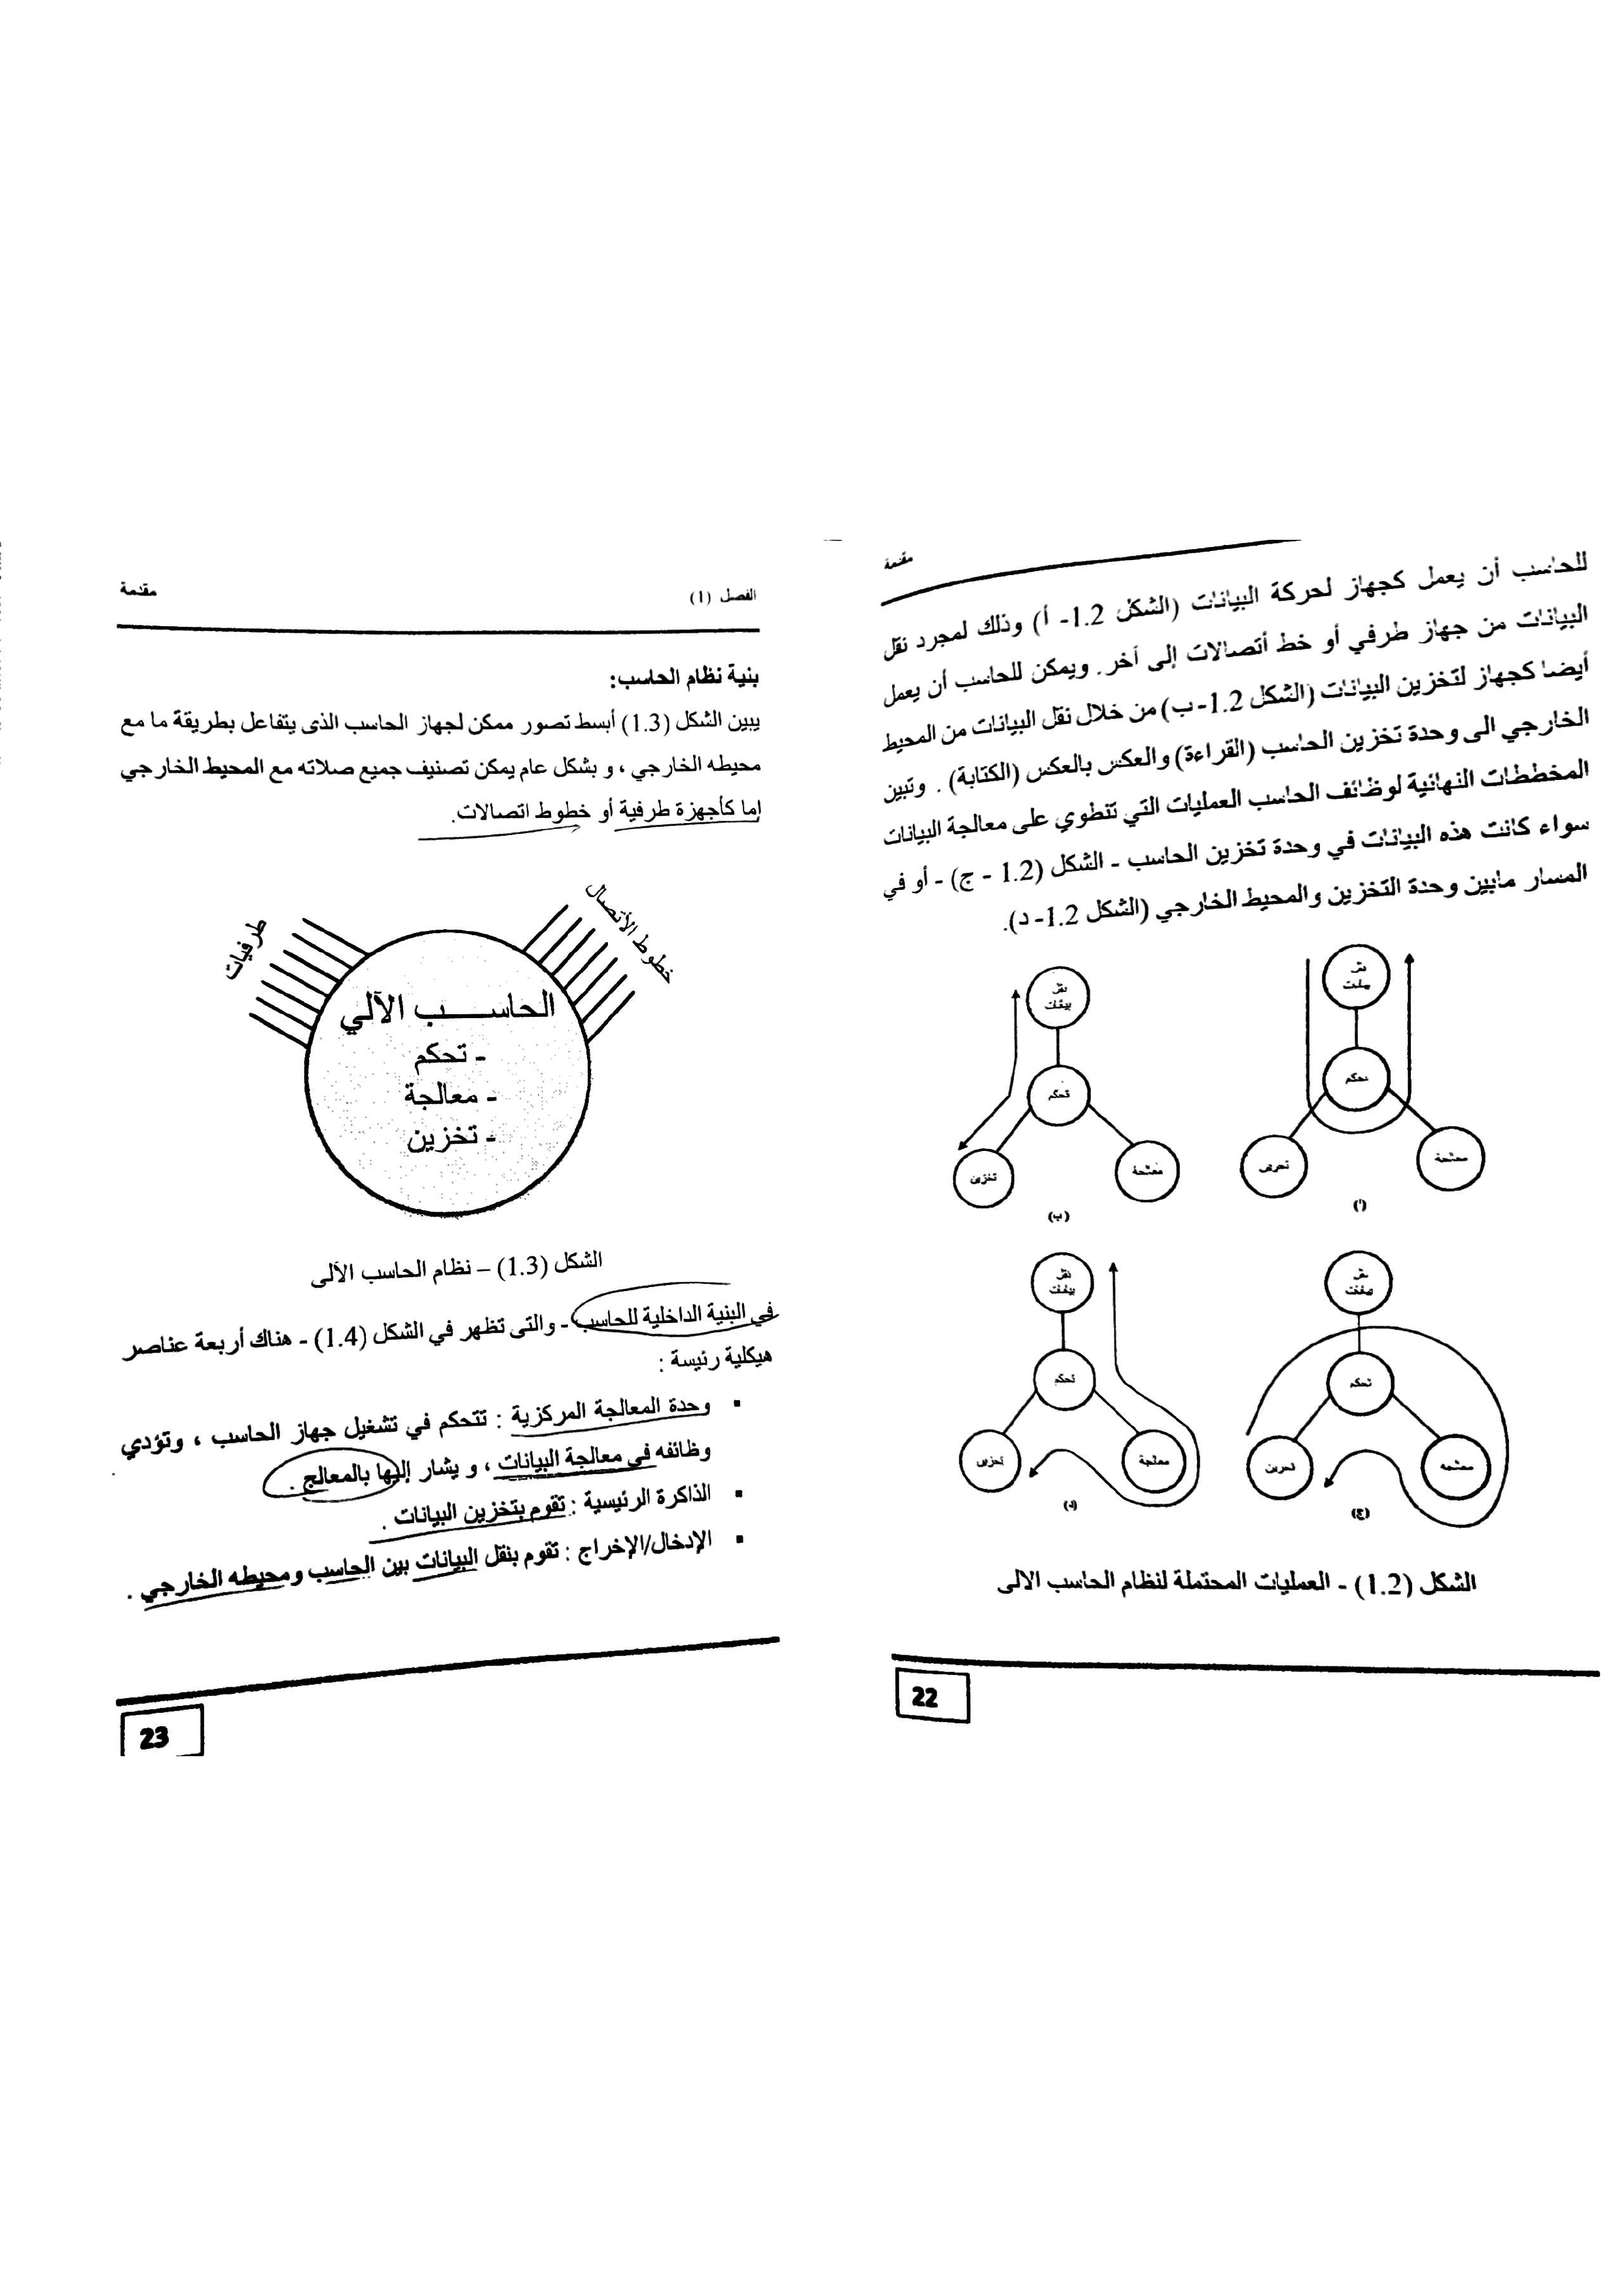 مقدمة
للحاسب أن يعمل كجهاز لحركة البيانات (الشكل 1.2- أ) وذلك لمجرد نقل
البيانات من جهاز طرفي أو خط أتصالات إلى أخر. ويمكن للحاسب أن يعمل
أيضا كجهاز لتخزين البيانات (الشكل 1.2- ب) من خلال نقل البيانات من المحيط
الخارجي الى وحدة تخزين الحاسب (القراءة) والعكس بالعكس (الكتابة) . وتبين
المخططات النهائية لوظائف الحاسب العمليات التي تنطوي على معالجة البيانات
سواء كانت هذه البيانات في وحدة تخزين الحاسب - الشكل (1.2 - ج) - أو في
المسار مابين وحدة التخزين والمحيط الخارجي (الشكل 1.2- د).
نقل
بيانات
تحكم
تخزين
معالجة
(أ)
نقل
بيانات
تحكم
تخزين
معالجة
(ب)
نقل
بيانات
تحكم
تخزين
معالجة
(ج)
نقل
بيانات
تحكم
تخزين
معالجة
(د)
الشكل (1.2) - العمليات المحتملة لنظام الحاسب الالى
22
الفصل (1)
مقدمة
بنية نظام الحاسب:
يبين الشكل (1.3) أبسط تصور ممكن لجهاز الحاسب الذى يتفاعل بطريقة ما مع
محيطه الخارجي ، و بشكل عام يمكن تصنيف جميع صلاته مع المحيط الخارجي
إما كأجهزة طرفية أو خطوط اتصالات.
خطوط الأتصال
طرفيات
الحاســـــب الآلي
- تحكم
- معالجة
- تخزين
الشكل (1.3) – نظام الحاسب الآلى
في البنية الداخلية للحاسب - والتى تظهر في الشكل (1.4) - هناك أربعة عناصر
هيكلية رئيسة :
▪ وحدة المعالجة المركزية : تتحكم في تشغيل جهاز الحاسب ، وتؤدي
وظائفه في معالجة البيانات ، و يشار إليها بالمعالج .
▪ الذاكرة الرئيسية : تقوم بتخزين البيانات .
▪ الإدخال/الإخراج : تقوم بنقل البيانات بين الحاسب ومحيطه الخارجي .
23